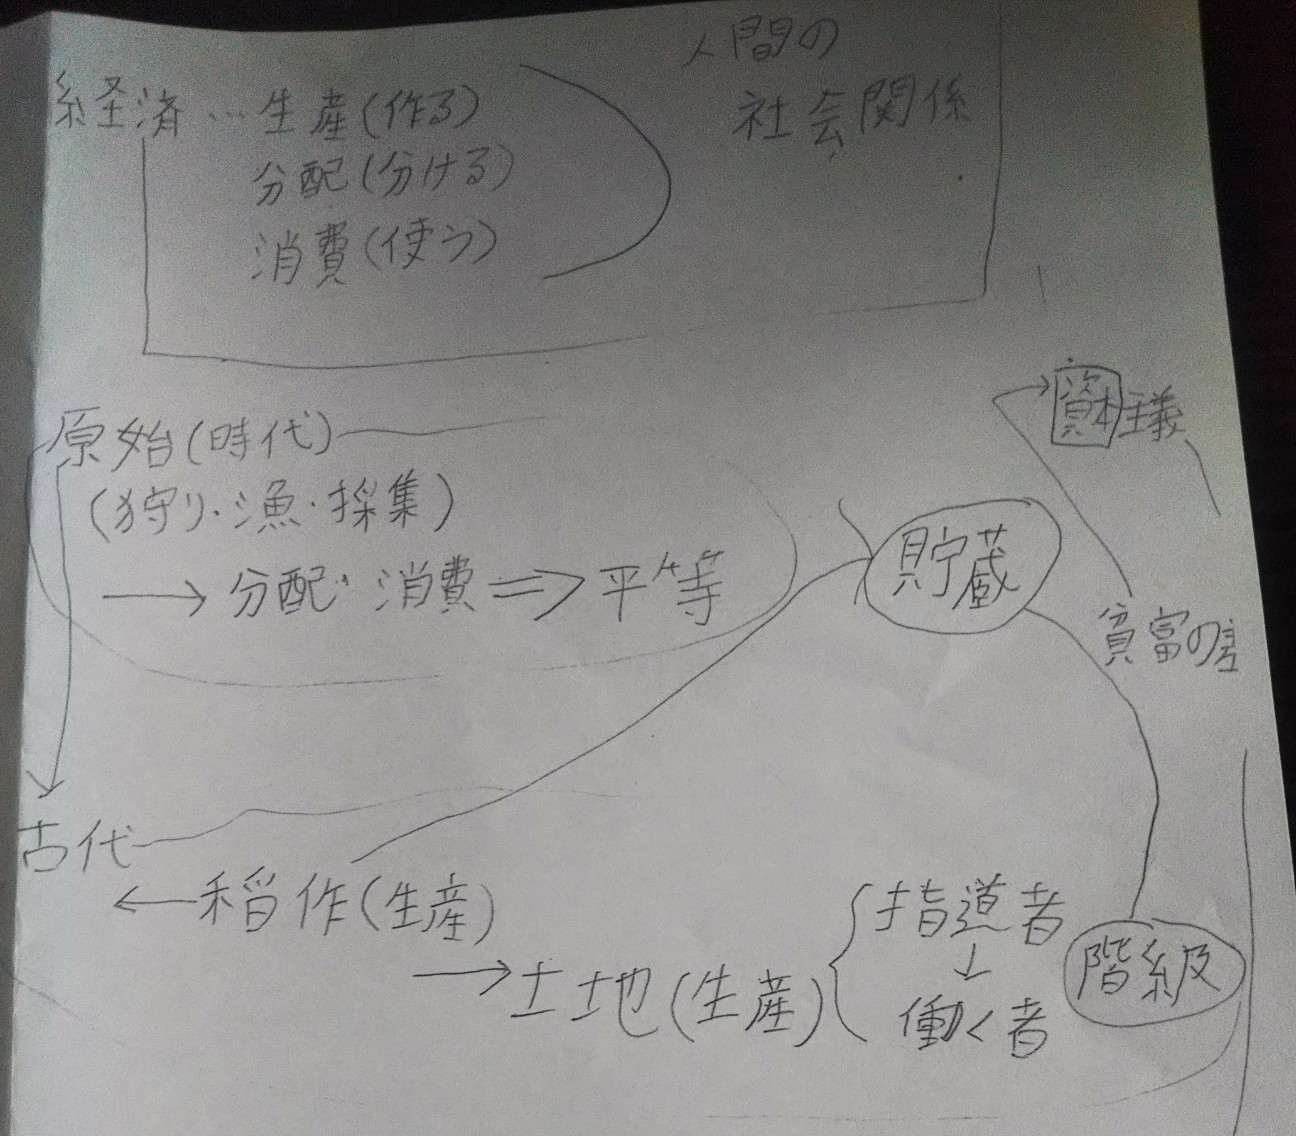 経済…生産(作る)
分配(分ける)
消費(使う)
人間の
社会関係
原始(時代)
(狩り・漁・採集)
→分配・消費⇒平等
資本主義
貯蔵
貧富の差
古代
←稲作(生産)
→土地(生産)
指導者
↓
働く者
階級